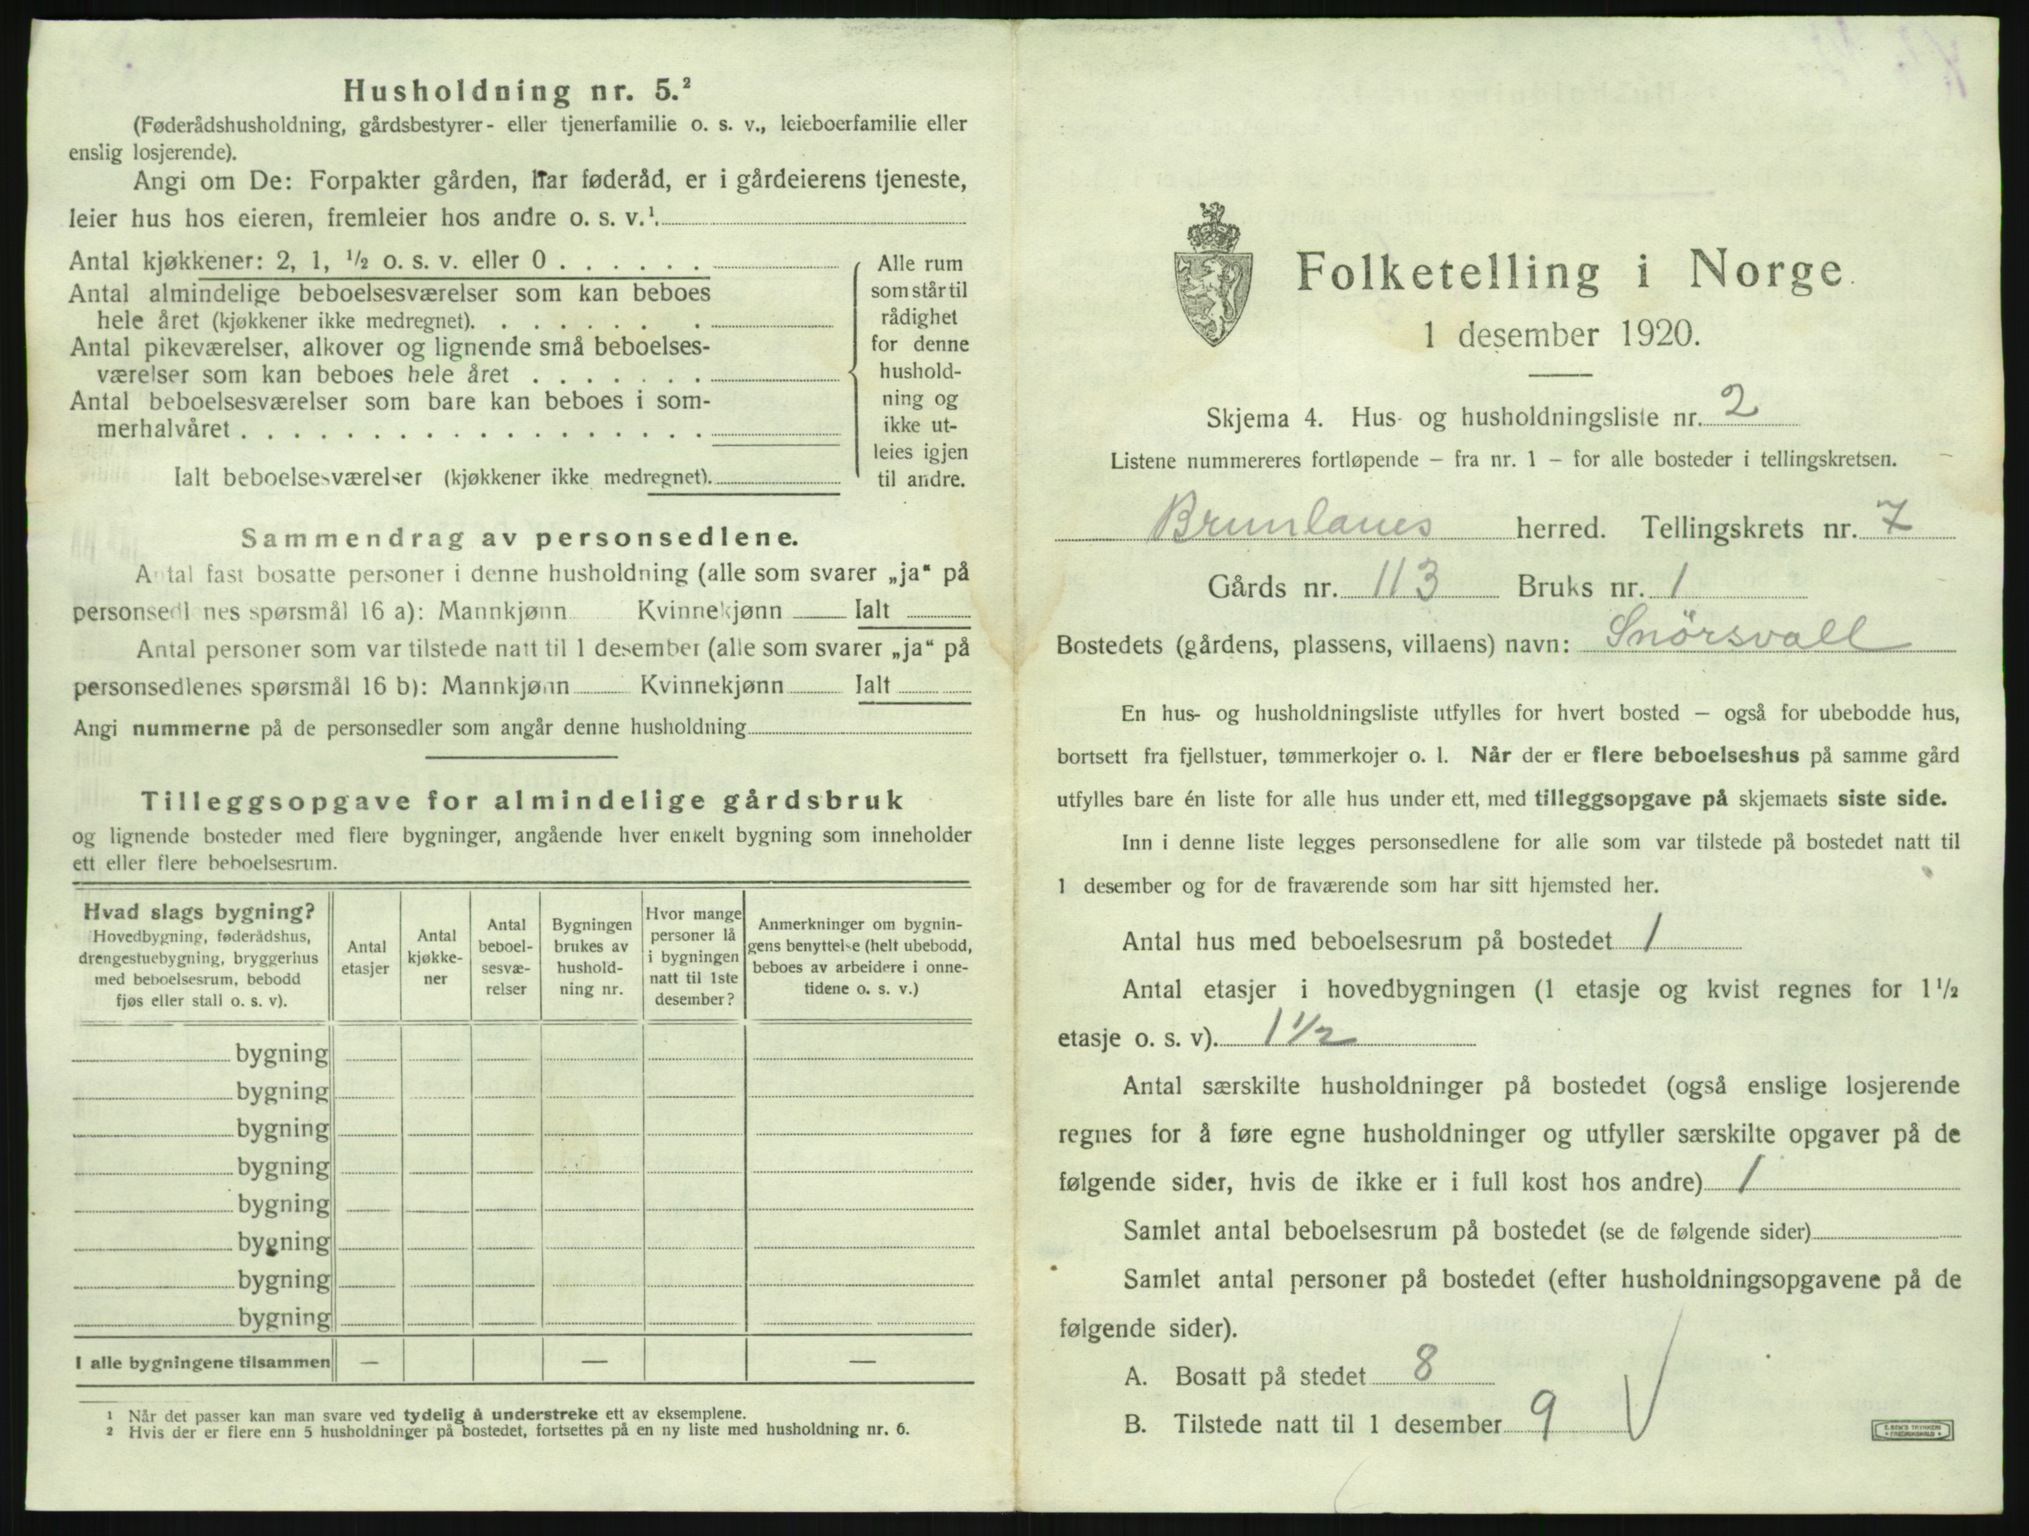 Husholdning nr. 5.²
(Føderådshusholdning, gårdsbestyrer- eller tjenerfamilie o. s. v., leieboerfamilie eller
enslig losjerende).
Angi om De: Forpakter gården, har føderåd, er i gårdeierens tjeneste,
leier hus hos eieren, fremleier hos andre o. s. v.¹
Antal kjøkkener: 2, 1, ½ o. s. v. eller 0 . . . . . .
Antal almindelige beboelsesværelser som kan beboes
hele året (kjøkkener ikke medregnet). . . . . . . .
Antal pikeværelser, alkover og lignende små beboelses-
værelser som kan beboes hele året . . . . . . .
Antal beboelsesværelser som bare kan beboes i som-
merhalvåret . . . . . . . . . . . . . . . . . .
Ialt beboelsesværelser (kjøkkener ikke medregnet).
Alle rum
som står til
rådighet
for denne
hushold-
ning og
ikke ut-
leies igjen
til andre.
Sammendrag av personsedlene.
Antal fast bosatte personer i denne husholdning (alle som svarer „ja“ på
personsedlenes spørsmål 16 a): Mannkjønn Kvinnekjønn Ialt
Antal personer som var tilstede natt til 1 desember (alle som svarer „ja“ på
personsedlenes spørsmål 16 b): Mannkjønn Kvinnekjønn Ialt
Angi nummerne på de personsedler som angår denne husholdning
Tilleggsopgave for almindelige gårdsbruk
og lignende bosteder med flere bygninger, angående hver enkelt bygning som inneholder
ett eller flere beboelsesrum.
Hvad slags bygning?
Hovedbygning, føderådshus,
drengestuebygning, bryggerhus
med beboelsesrum, bebodd
fjøs eller stall o. s. v).
Antal
etasjer
Antal
kjøkke-
ner
Antal
beboel-
sesvæ-
relser
Bygningen
brukes av
hushold-
ning nr.
Hvor mange
personer lå
i bygningen
natt til 1ste
desember?
Anmerkninger om bygnin-
gens benyttelse (helt ubebodd,
beboes av arbeidere i onne-
tidene o. s. v.)
bygning
bygning
bygning
bygning
bygning
bygning
bygning
bygning
I alle bygningene tilsammen — — —
¹ Når det passer kan man svare ved tydelig å understreke ett av eksemplene.
² Hvis der er flere enn 5 husholdninger på bostedet, fortsettes på en ny liste med husholdning nr. 6.
Folketelling i Norge.
1 desember 1920.
Skjema 4. Hus- og husholdningsliste nr. 2
Listene nummereres fortløpende – fra nr. 1 – for alle bosteder i tellingskretsen.
Brunlanes herred. Tellingskrets nr. 7
Gårds nr. 113 Bruks nr. 1
Bostedets (gårdens, plassens, villaens) navn: Snörsvall
En hus- og husholdningsliste utfylles for hvert bosted – også for ubebodde hus,
bortsett fra fjellstuer, tømmerkojer o. l. Når der er flere beboelseshus på samme gård
utfylles bare én liste for alle hus under ett, med tilleggsopgave på skjemaets siste side.
Inn i denne liste legges personsedlene for alle som var tilstede på bostedet natt til
1 desember og for de fraværende som har sitt hjemsted her.
Antal hus med beboelsesrum på bostedet 1
Antal etasjer i hovedbygningen (1 etasje og kvist regnes for 1½
etasje o. s. v). 1½
Antal særskilte husholdninger på bostedet (også enslige losjerende
regnes for å føre egne husholdninger og utfyller særskilte opgaver på de
følgende sider, hvis de ikke er i full kost hos andre) 1
Samlet antal beboelsesrum på bostedet (se de følgende sider)
Samlet antal personer på bostedet (efter husholdningsopgavene på de
følgende sider).
A. Bosatt på stedet 8
B. Tilstede natt til 1 desember 9